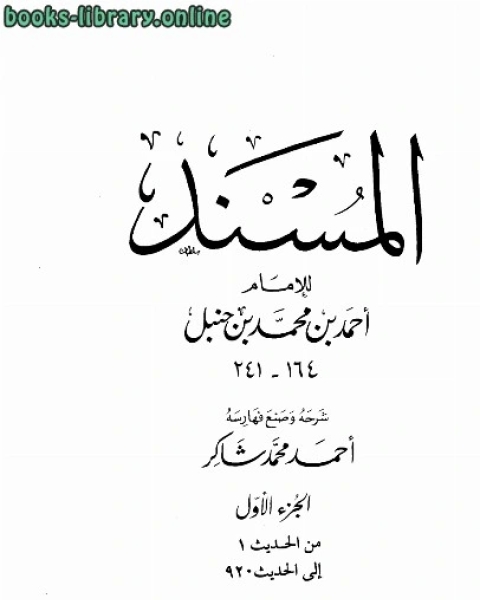 books-library.online
المُسْنَد
للإمام
أحمد بن محمد بن حنبل
١٦٤ - ٢٤١
شَرحَهُ وَصَنعَ فهَارِسَهُ
أحمد محمد شاكر
الجزء الأول
من الحديث ١
إلى الحديث ٩٢٠